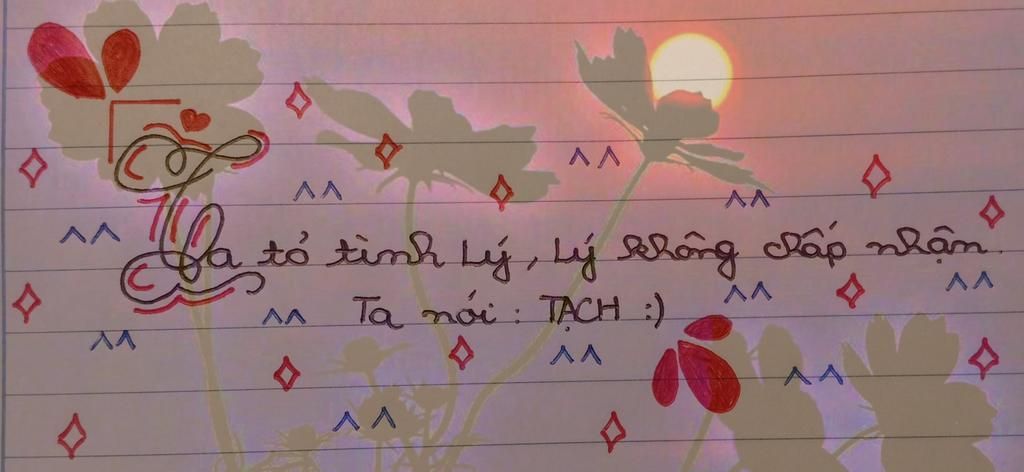 Ta tỏ tình Lý, Lý không chấp nhận.
Ta nói : TẠCH :)